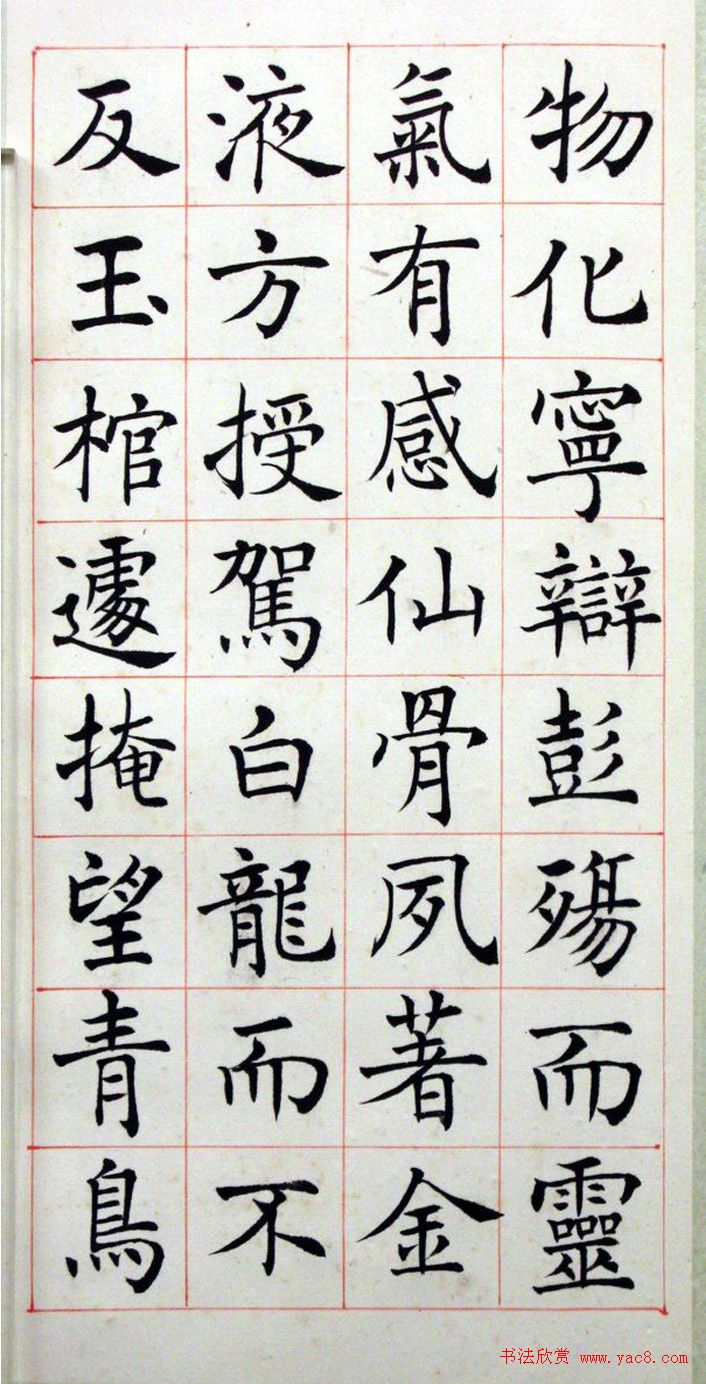 物化寧辯彭殤而靈
氣有感仙骨夙著金
液方授駕白龍而不
反玉棺遽掩望青鳥
书法欣赏 www.yac8.com